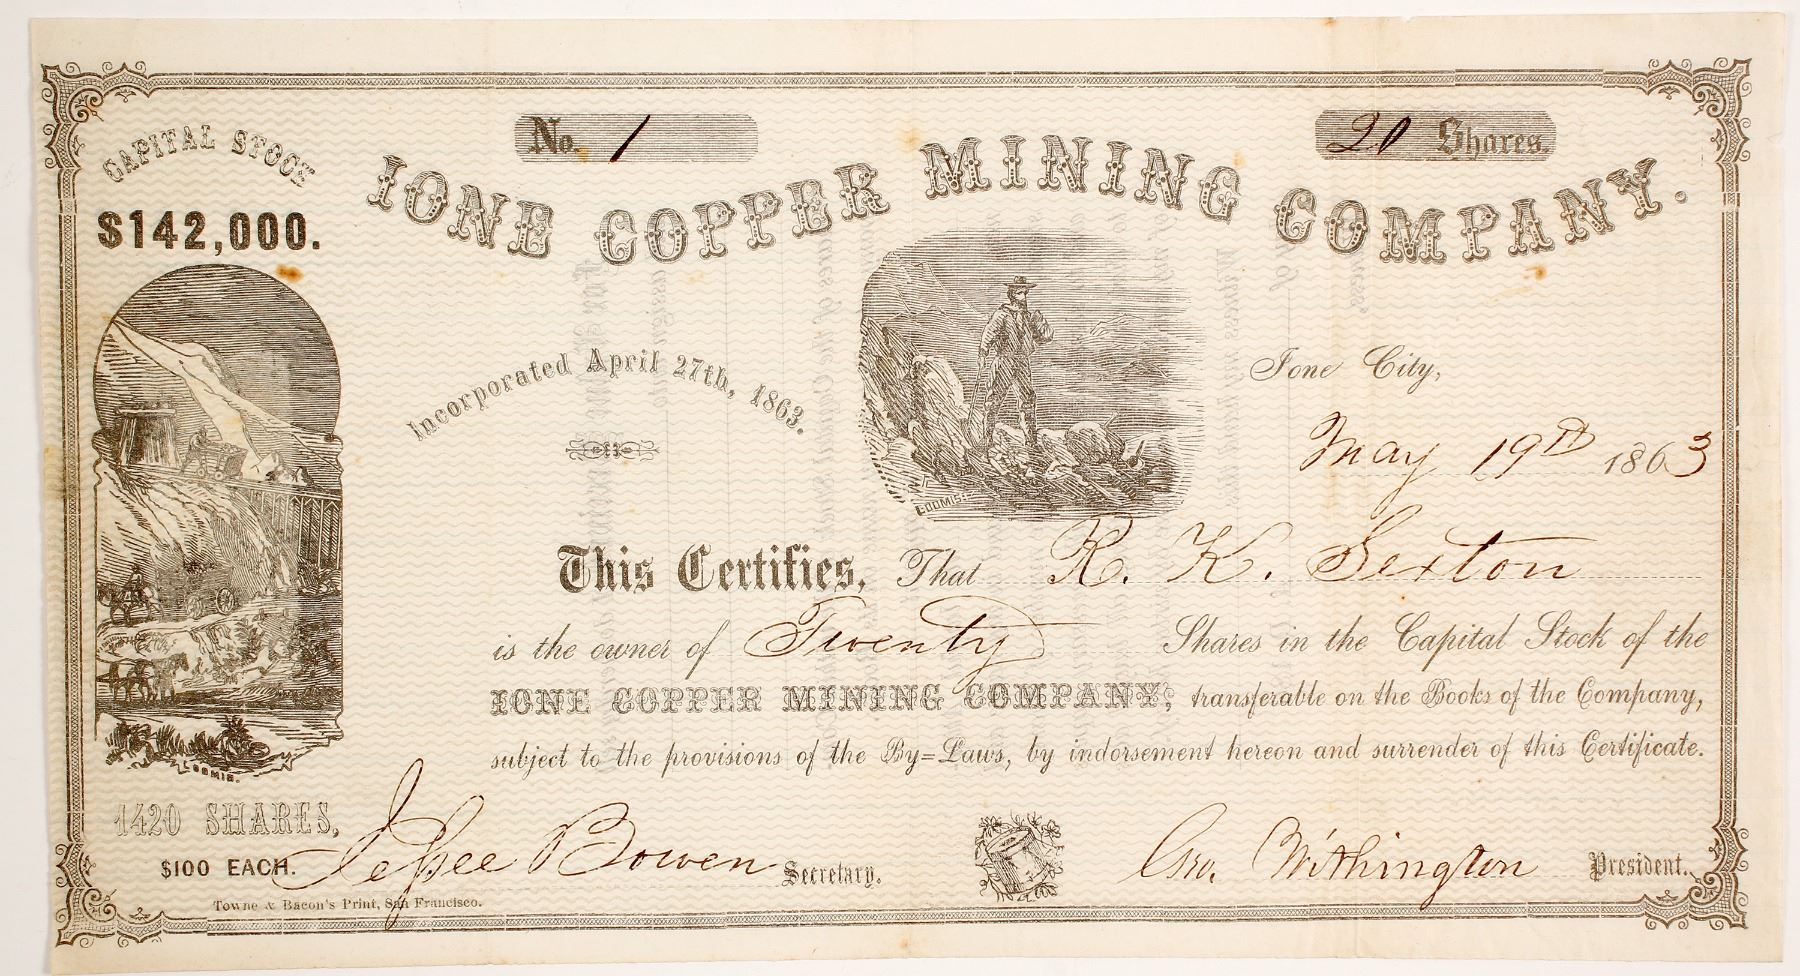 CAPITAL STOCK
$142,000.
No. 1
20 Shares.
IONE COPPER MINING COMPANY.
Incorporated April 27th, 1863.
LOOMIS.
Ione City,
May 19th 1863
This Certifies, That R. K. Sexton
is the owner of Twenty Shares in the Capital Stock of the
IONE COPPER MINING COMPANY, transferable on the Books of the Company,
subject to the provisions of the By=Laws, by indorsement hereon and surrender of this Certificate.
LOOMIS.
1420 SHARES,
$100 EACH.
Jessee Bowen Secretary.
Geo. Withington President.
Towne & Bacon's Print, San Francisco.